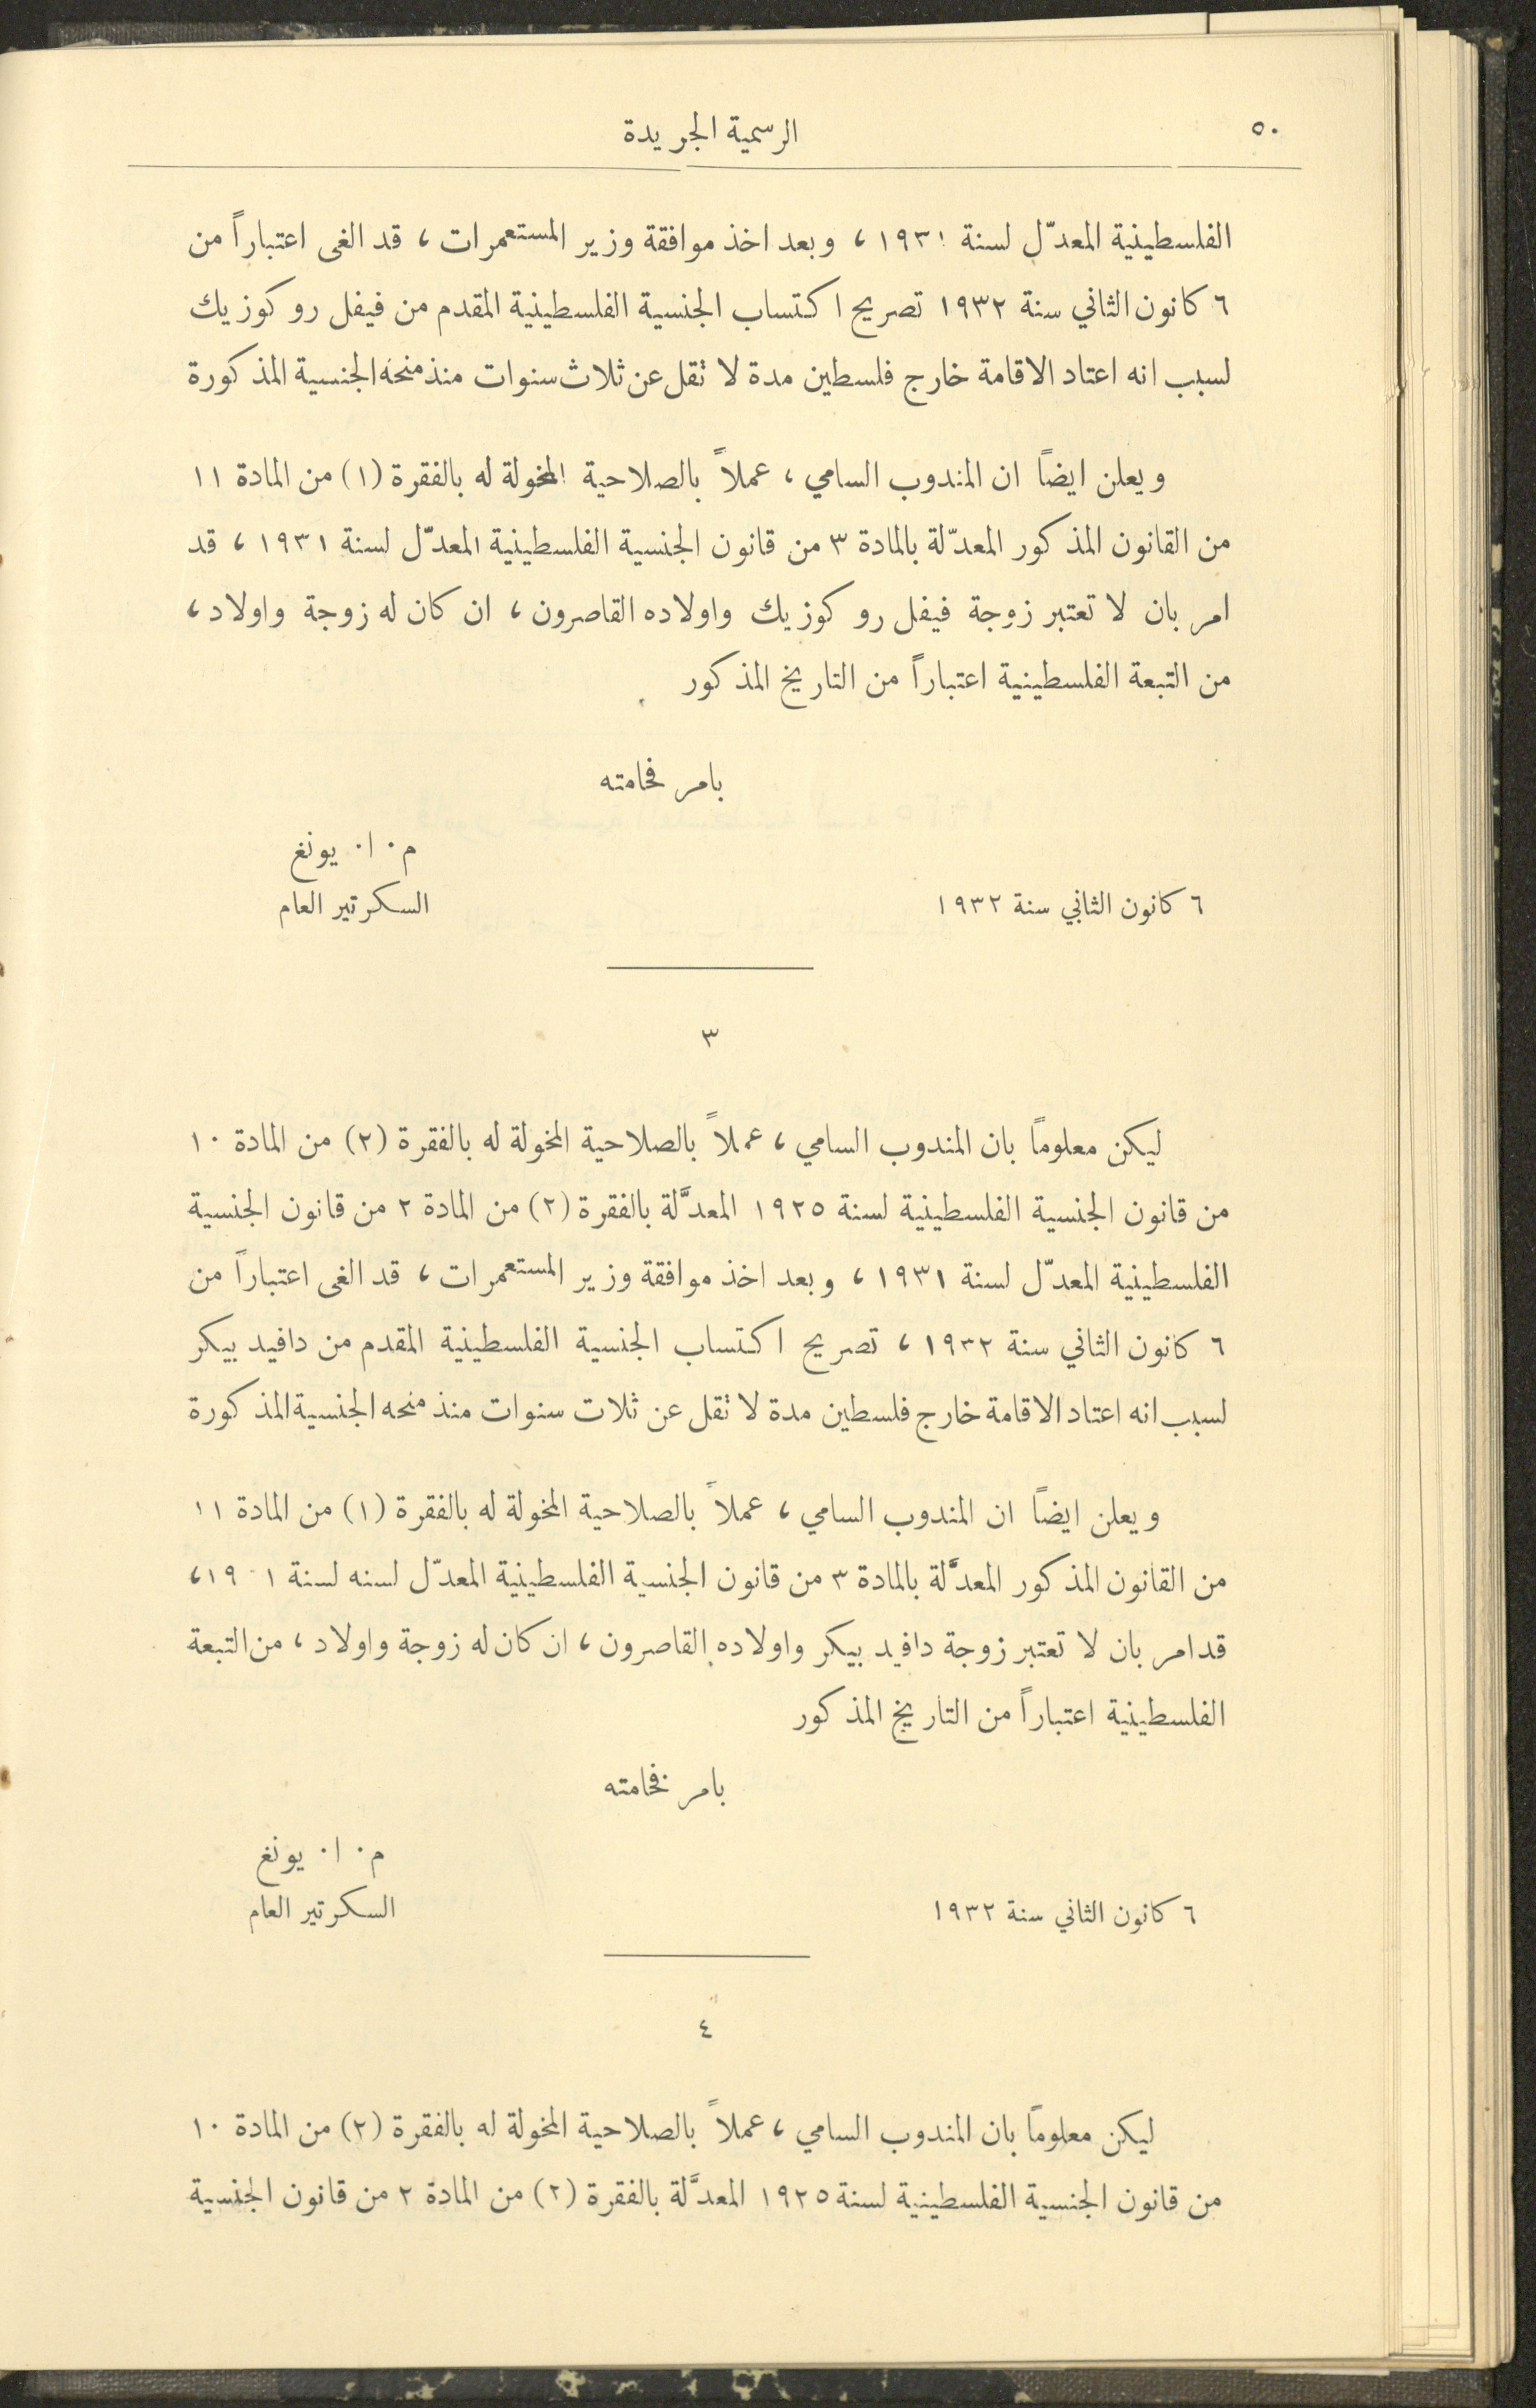 ٥٠
الرسمية الجريدة
الفلسطينية المعدّل لسنة ١٩٣١ ، وبعد اخذ موافقة وزير المستعمرات ، قد الغى اعتباراً من
٦ كانون الثاني سنة ١٩٣٢ تصريح اكتساب الجنسية الفلسطينية المقدم من فيفل روكوزيك
لسبب انه اعتاد الاقامة خارج فلسطين مدة لا تقل عن ثلاث سنوات منذ منحه الجنسية المذكورة
ويعلن ايضاً ان المندوب السامي ، عملاً بالصلاحية المخولة له بالفقرة (١) من المادة ١١
من القانون المذكور المعدّلة بالمادة ٣ من قانون الجنسية الفلسطينية المعدّل لسنة ١٩٣١ ، قد
امر بان لا تعتبر زوجة فيفل روكوزيك واولاده القاصرون ، ان كان له زوجة واولاد ،
من التبعة الفلسطينية اعتباراً من التاريخ المذكور
بامر فخامته
م. ا. يونغ
٦ كانون الثاني سنة ١٩٣٢ السكرتير العام
٣
ليكن معلوماً بان المندوب السامي ، عملاً بالصلاحية المخولة له بالفقرة (٢) من المادة ١٠
من قانون الجنسية الفلسطينية لسنة ١٩٢٥ المعدَّلة بالفقرة (٢) من المادة ٢ من قانون الجنسية
الفلسطينية المعدّل لسنة ١٩٣١ ، وبعد اخذ موافقة وزير المستعمرات ، قد الغى اعتباراً من
٦ كانون الثاني سنة ١٩٣٢ ، تصريح اكتساب الجنسية الفلسطينية المقدم من دافيد بيكر
لسبب انه اعتاد الاقامة خارج فلسطين مدة لا تقل عن ثلات سنوات منذ منحه الجنسية المذكورة
ويعلن ايضاً ان المندوب السامي ، عملاً بالصلاحية المخولة له بالفقرة (١) من المادة ١١
من القانون المذكور المعدَّلة بالمادة ٣ من قانون الجنسية الفلسطينية المعدّل لسنه لسنة
قد امر بان لا تعتبر زوجة دافيد بيكر واولاده القاصرون ، ان كان له زوجة واولاد ، من التبعة
الفلسطينية اعتباراً من التاريخ المذكور
بامر فخامته
م. ا. يونغ
٦ كانون الثاني سنة ١٩٣٢ السكرتير العام
٤
ليكن معلوماً بان المندوب السامي ، عملاً بالصلاحية المخولة له بالفقرة (٢) من المادة ١٠
من قانون الجنسية الفلسطينية لسنة ١٩٢٥ المعدَّلة بالفقرة (٢) من المادة ٢ من قانون الجنسية